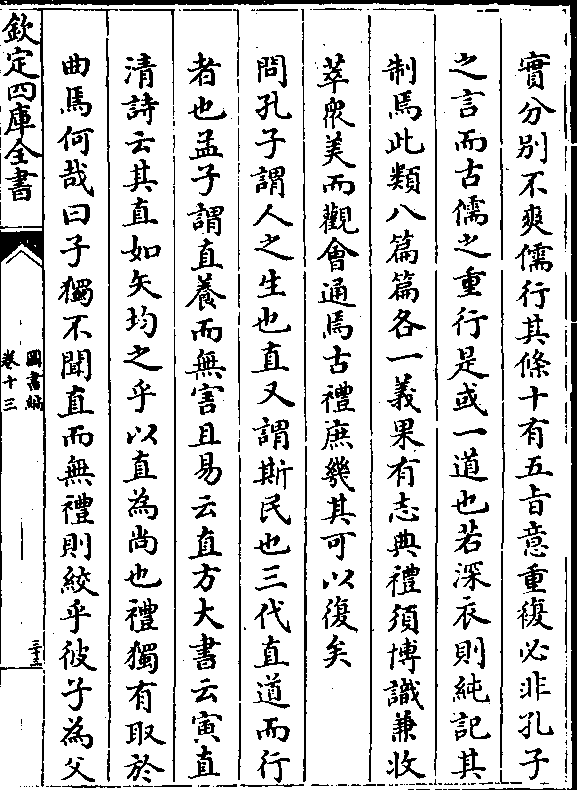 實分别不爽儒行其條十有五㫖意重複必非孔子
之言而古儒之重行是或一道也若深衣則純記其
制焉此類八篇篇各一義果有志典禮須博識兼收
萃衆美而觀會通焉古禮庶幾其可以復矣
問孔子謂人之生也直又謂斯民也三代直道而行
者也孟子謂直養而無害且易云直方大書云寅直
清詩云其直如矢均之乎以直為尚也禮獨有取於
曲焉何哉曰子獨不聞直而無禮則絞乎彼子為父
欽定四庫全書
圖書編
卷十三
三十三